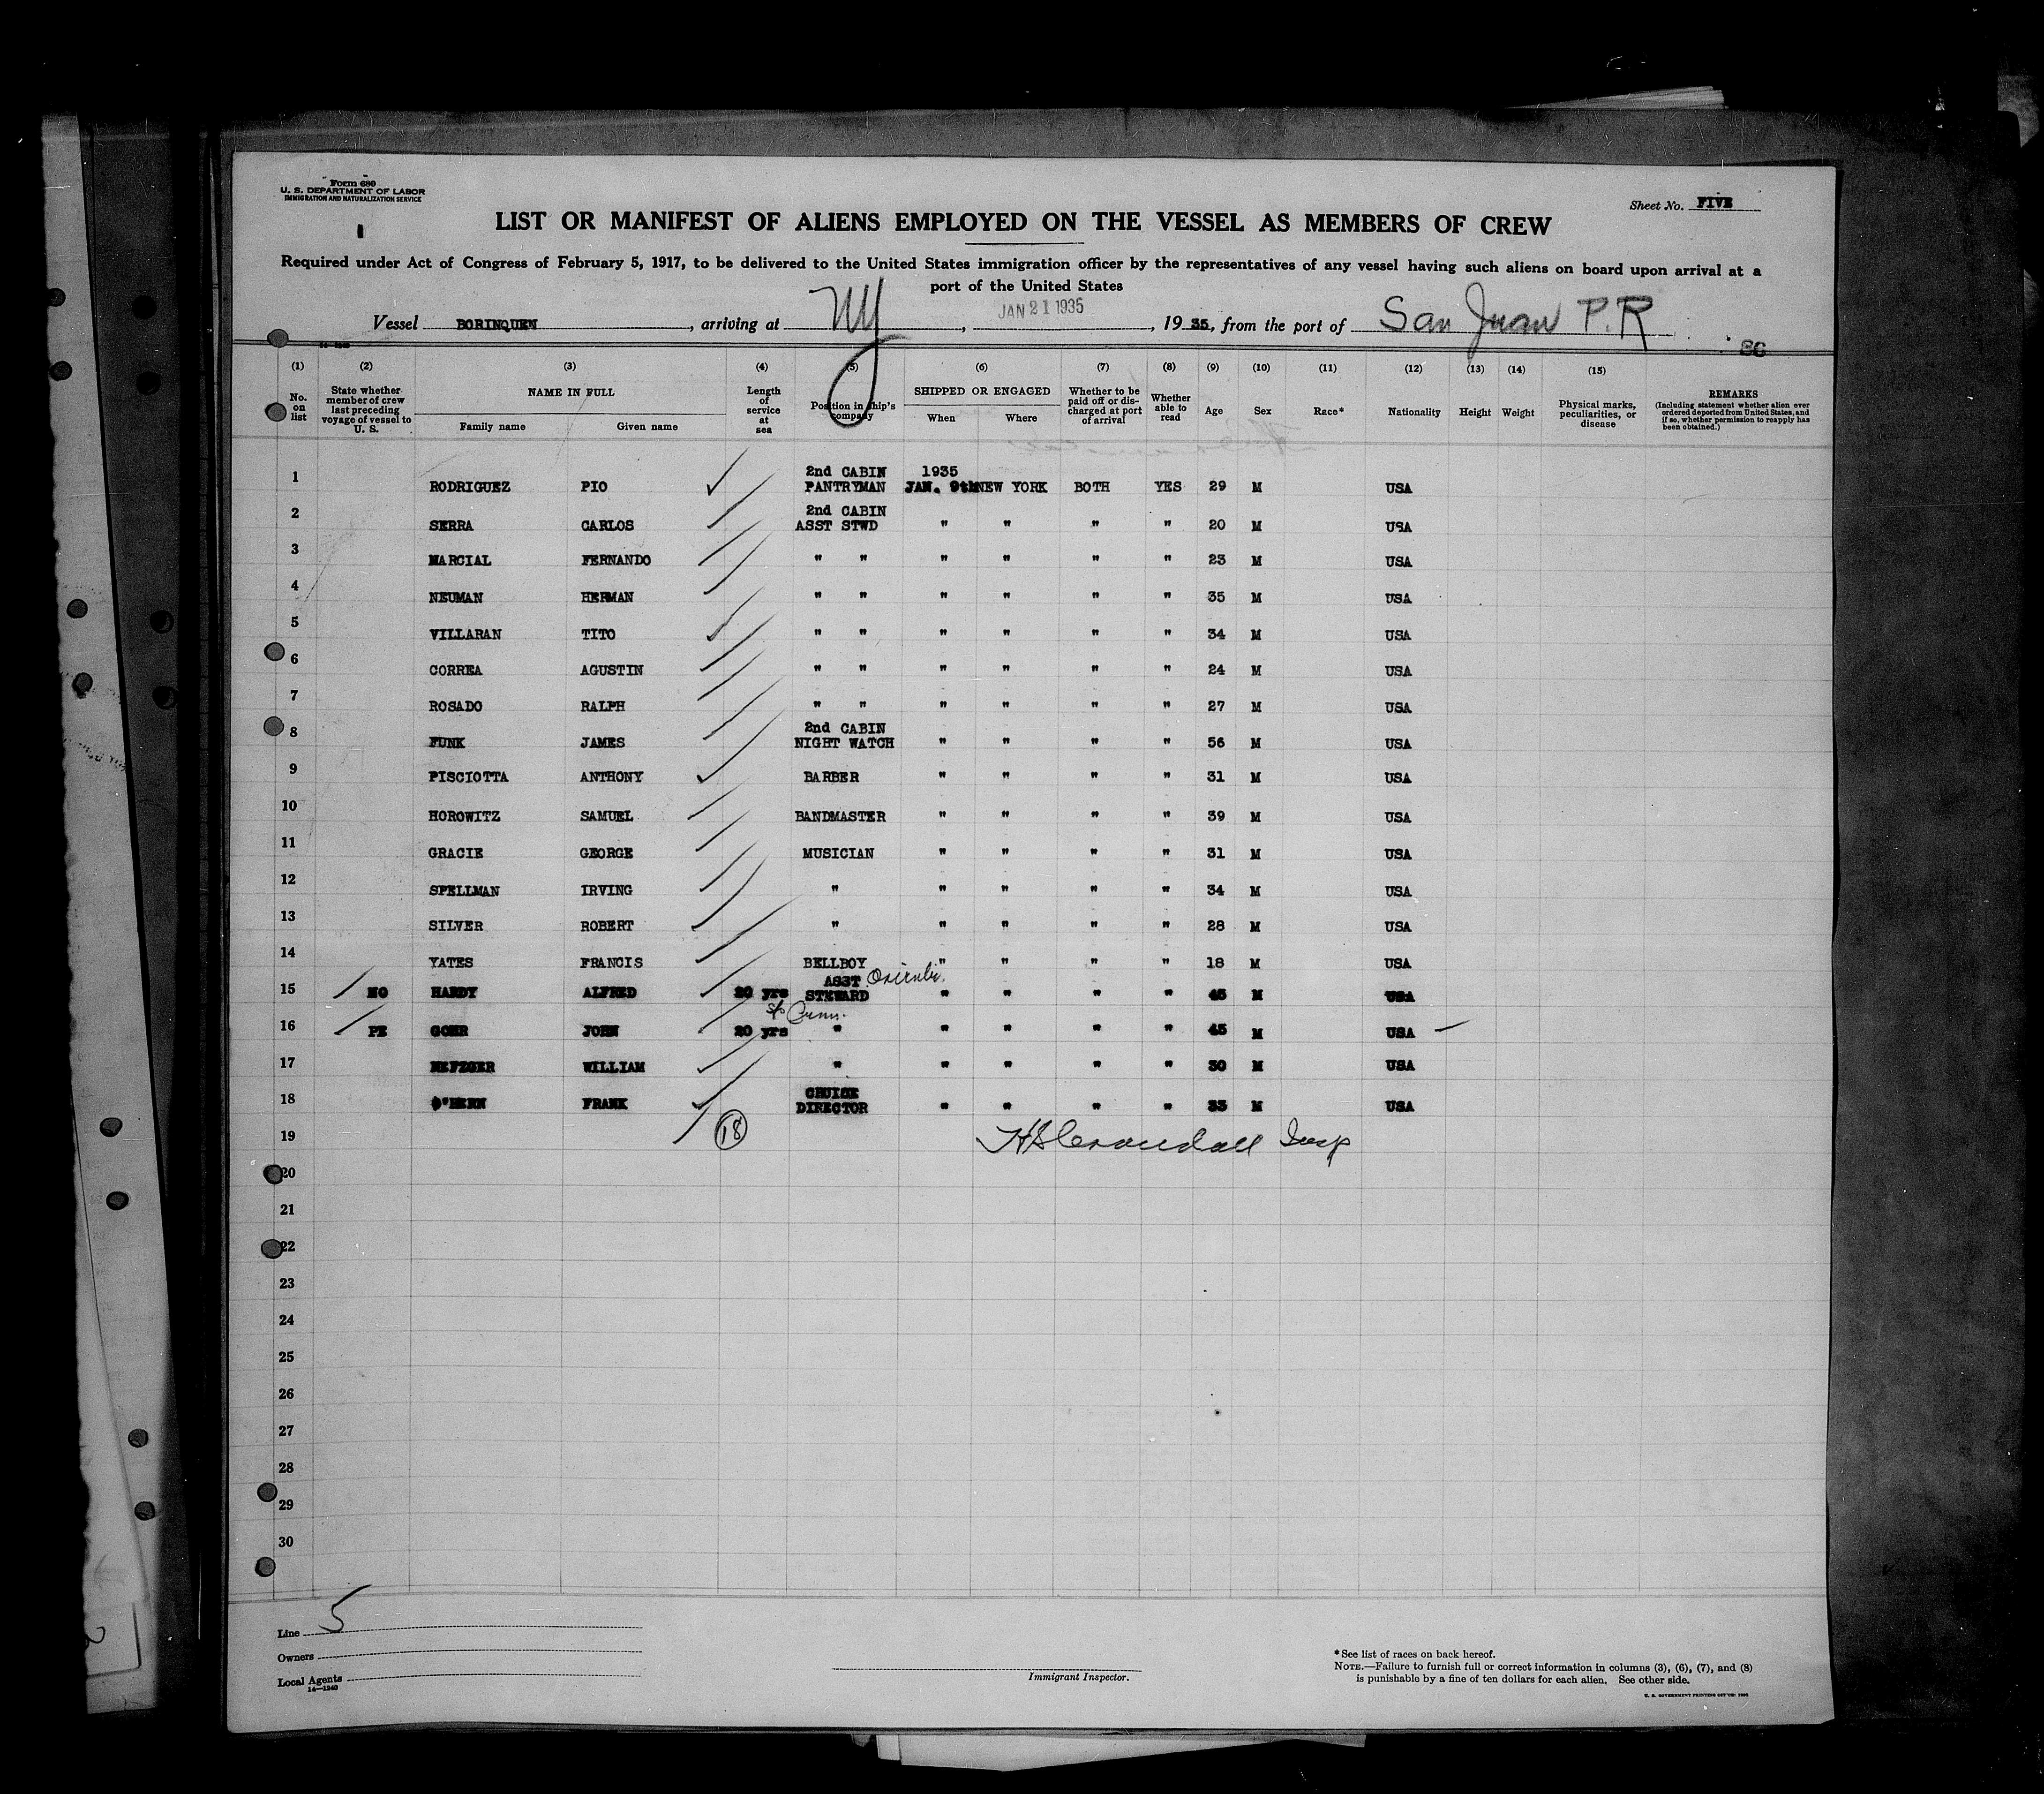 Form 680
U. S. DEPARTMENT OF LABOR
IMMIGRATION AND NATURALIZATION SERVICE
Sheet No. FIVE
LIST OR MANIFEST OF ALIENS EMPLOYED ON THE VESSEL AS MEMBERS OF CREW
Required under Act of Congress of February 5, 1917, to be delivered to the United States immigration officer by the representatives of any vessel having such aliens on board upon arrival at a
port of the United States
Vessel BORINQUEN, arriving at NY, JAN 21 1935, 1935, from the port of San Juan P.R
86
(1) (2) (3) (4) (5) (6) (7) (8) (9) (10) (11) (12) (13) (14) (15)
No. on list
State whether member of crew last preceding voyage of vessel to U. S.
NAME IN FULL
Family name Given name
Length of service at sea
Position in ship's company
SHIPPED OR ENGAGED
When Where
Whether to be paid off or discharged at port of arrival
Whether able to read
Age
Sex
Race*
Nationality
Height
Weight
Physical marks, peculiarities, or disease
REMARKS
(Including statement whether alien ever ordered deported from United States, and if so, whether permission to reapply has been obtained.)
1 RODRIGUEZ PIO 2nd CABIN PANTRYMAN 1935 JAN. 9th NEW YORK BOTH YES 29 M USA
2 SERRA CARLOS 2nd CABIN ASST STWD " " " " 20 M USA
3 MARCIAL FERNANDO " " " " " " 23 M USA
4 NEUMAN HERMAN " " " " " " 35 M USA
5 VILLARAN TITO " " " " " " 34 M USA
6 CORREA AGUSTIN " " " " " " 24 M USA
7 ROSADO RALPH " " " " " " 27 M USA
8 FUNK JAMES 2nd CABIN NIGHT WATCH " " " " 56 M USA
9 PISCIOTTA ANTHONY BARBER " " " " 31 M USA
10 HOROWITZ SAMUEL BANDMASTER " " " " 39 M USA
11 GRACIE GEORGE MUSICIAN " " " " 31 M USA
12 SPELLMAN IRVING " " " " " 34 M USA
13 SILVER ROBERT " " " " " 28 M USA
14 YATES FRANCIS BELLBOY " " " " 18 M USA
15 NO HARDY ALFRED 20 yrs ASST STEWARD " " " " 45 M USA
16 PE GOHR JOHN 20 yrs " " " " " 45 M USA
17 WILLIAM " " " " " 30 M USA
18 O'HERN FRANK CRUISE DIRECTOR " " " " 33 M USA
19 18 HS Crandall Insp
20
21
22
23
24
25
26
27
28
29
30
Line 5
Owners
Local Agents
14—1240
Immigrant Inspector.
*See list of races on back hereof.
NOTE.—Failure to furnish full or correct information in columns (3), (6), (7), and (8)
is punishable by a fine of ten dollars for each alien. See other side.